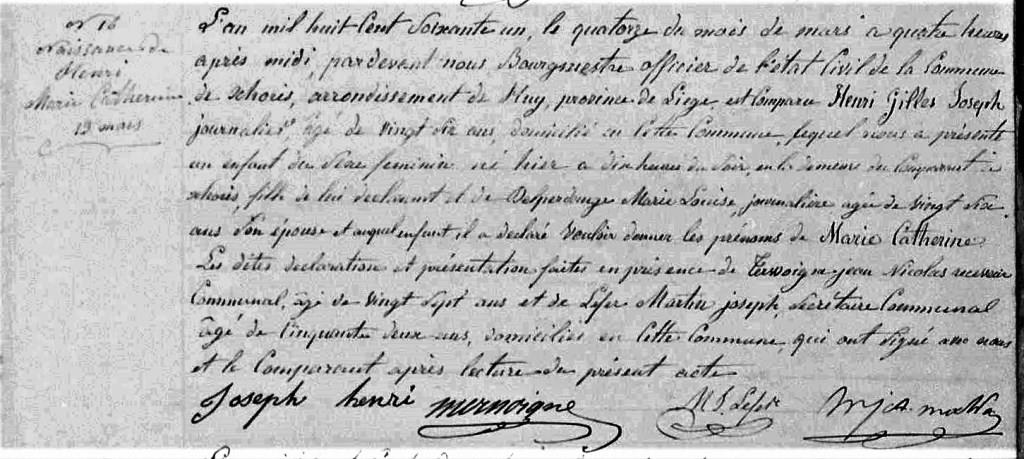 N° 16
Naissance de
Henri,
Marie Catherine
13 mars
L'an mil huit Cent Soixante un, le quatorze du mois de mars a quatre heures
après midi, pardevant nous Bourgmestre officier de l'état Civil de la Commune
de Xhoris, arrondissement de Huy, province de Liege, est Comparu Henri Gilles Joseph
journalier âgé de vingt Six ans, domicilié en Cette Commune, lequel nous a présenté
un enfant du Sexe feminin né hier a dix heures du Soir, en la demeure du Comparant a
Xhoris, fille de lui declarant et de Desperdange Marie Louise, journalière agée de vingt Six
ans Son épouse et auquel enfant il a declaré Vouloir donner les prénoms de Marie Catherine
Les dites declaration et présentation faites en présence de jean Nicolas receveur
Communal, âgé de Vingt Sept ans et de Martin joseph, Secrétaire Communal
âgé de Cinquante deux ans, domiciliés en Cette Commune, qui ont Signé avec nous
et le Comparant après lecture du présent acte
Joseph henri